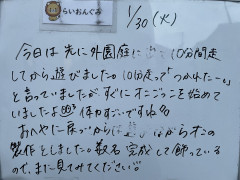 らいおんぐみ
1/30(火)
今日は先に外園庭に 10分間走
してから遊びました。10分走って「つかれたー」
と言っていましたがすぐにオニごっこを始めて
いましたよ 体力すごいですね
おへやに戻ってからは ながらオニの
製作をしました。数名 完成して飾っている
ので、また見てみてください。